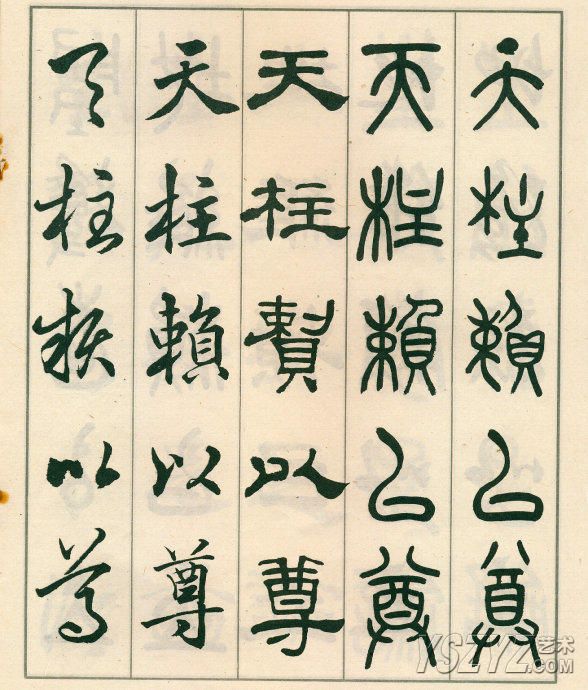 天柱賴以尊
天柱賴以尊
天柱賴以尊
天柱賴以尊
天柱賴以尊
YSZYZ艺术
.COM